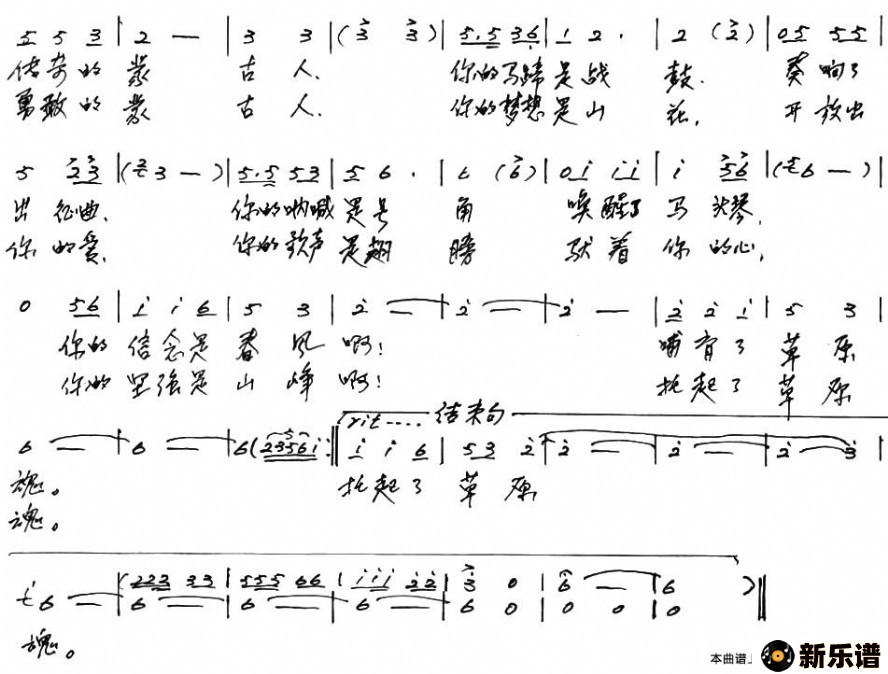 5 5 3 | 2 — | 3 3 | (3 3) | 5.5 36 | 1 2. | 2 (2) | 05 55
传奇的蒙古人. 你的马蹄是战鼓. 奏响了
勇敢的蒙古人. 你的梦想是山花, 开放出
5 23 | (23 —) | 5.5 53 | 5 6. | 6 (6) | 0i ii | i 56 | (56 —) |
出征曲. 你的呐喊是号角 唤醒了马头琴,
你的爱. 你的歌声是翅膀 驮着你的心,
0 56 | i i 6 | 5 3 | 2 — | 2 — | 2 — | 2 2 i | 5 3 |
你的信念是春风啊! 哺育了草原
你的坚强是山峰啊! 托起了草原
rit.... 结束句
6 — | 6 — | 6 (2356i :‖ i i 6 | 53 2 | 2 — | 2 — | 2 3 |
魂。 托起了草原
魂。
(223 33 | 555 66 | iii 22 | 3 0 | 6 — | 6 )‖
i6 — | 6 — | 6 — | 6 — | 6 0 | 0 0 | 0
魂。
本曲谱」 新乐谱